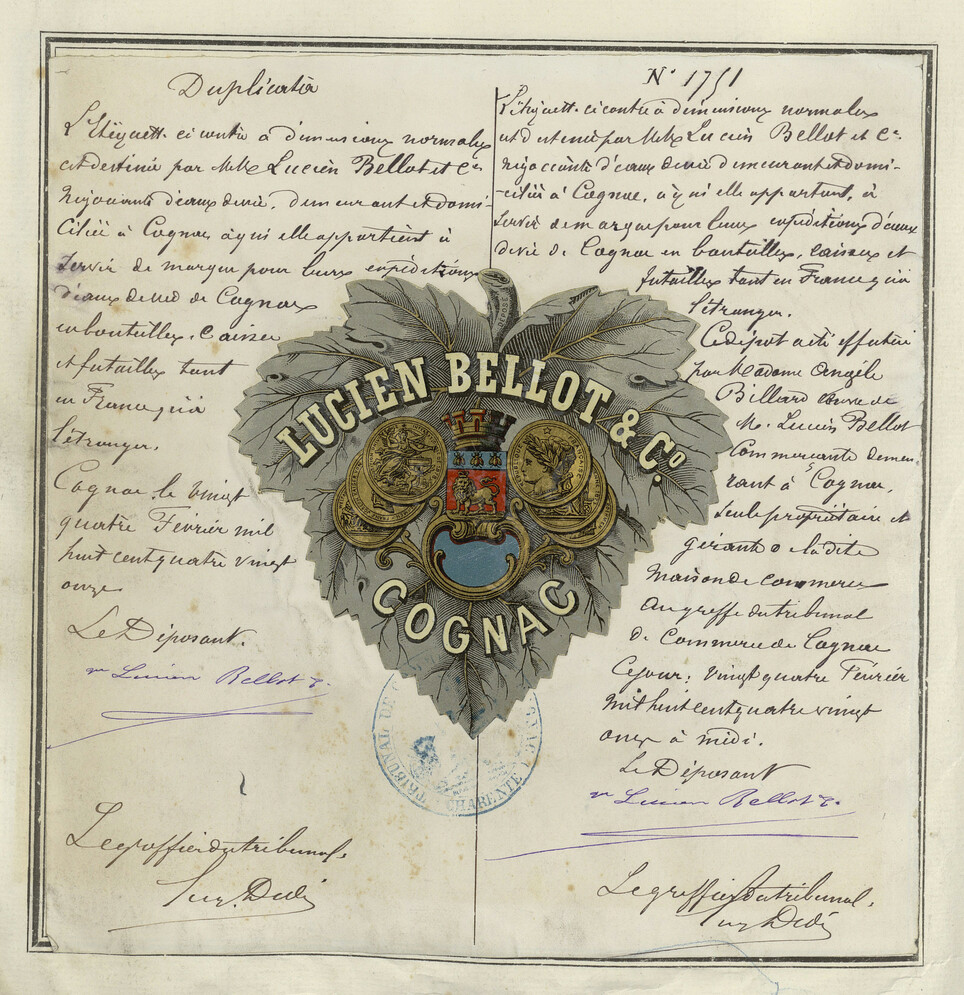 Duplicata
L'étiquette ci contre à dimensions normales
est destinée par M.M. Lucien Bellot et Cie
Négociants d'eaux de vie, demeurant et domi-
ciliés à Cognac, à qui elle appartient à
servir de marque pour leurs expéditions
d'eaux de vie de Cognac
en bouteilles, caisses
et futailles tant
en France qu'à
l'étranger.
Cognac, le vingt
quatre Février mil
huit cent quatre vingt
onze
Le Déposant.
Lucien Bellot &
Le greffier du tribunal.
N° 1751
L'étiquette ci contre à dimensions normales
est destinée par M.M. Lucien Bellot et Cie
négociants d'eaux de vie demeurant et domi-
-ciliés à Cognac, à qui elle appartient, à
servir de marque pour leurs expéditions d'eaux
de vie de Cognac en bouteilles, caisses et
futailles tant en France qu'à
l'étranger.
Ce dépôt a été effectué
par Madame Angèle
Billard veuve de
M. Lucien Bellot
Commerçante demeu-
rant à Cognac,
seule propriétaire et
gérante de la dite
Maison de commerce
au greffe du tribunal
de Commerce de Cognac
Ce jour: vingt quatre Février
mil huit cent quatre vingt
onze à midi.
Le Déposant
Lucien Bellot &
Le greffier du tribunal.
LUCIEN BELLOT & Co.
COGNAC
TRIBUNAL DE
CHARENTE